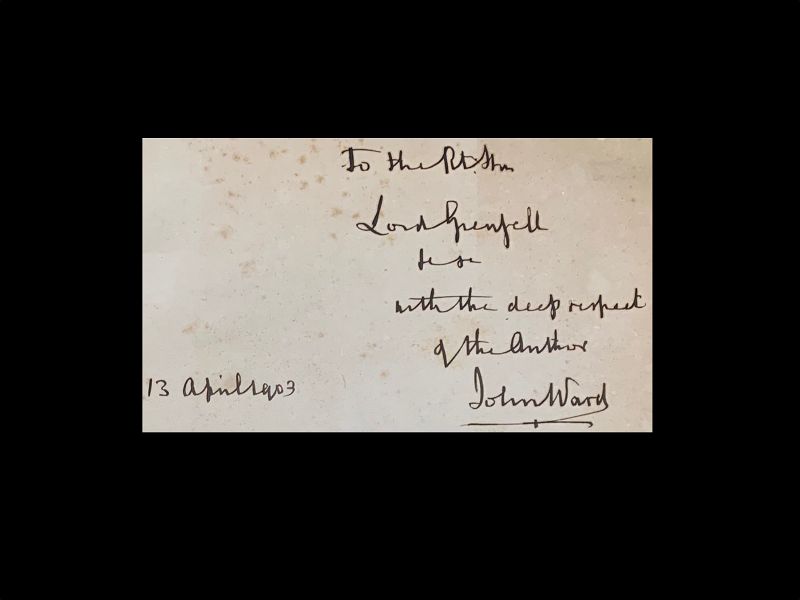 To the Rt. Hon
Lord Grenfell
&c &c
with the deep respect
of the Author
John Ward
13 April 1903